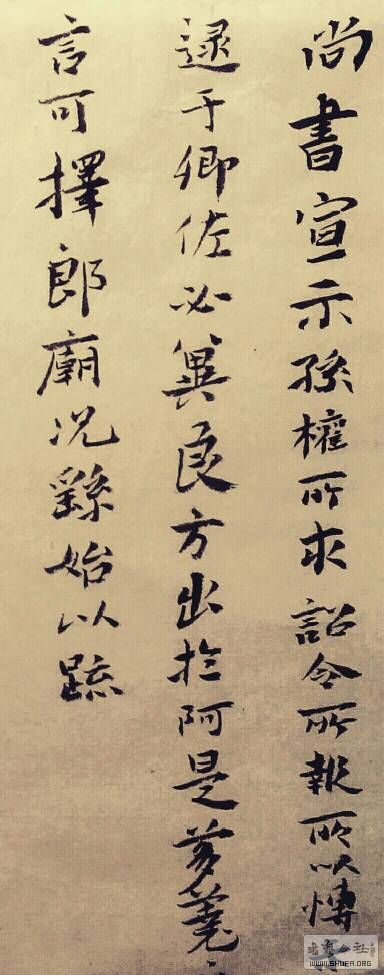 尚書宣示孫權所求詔令所報所以博
逮于卿佐必冀良方出於阿是芻蕘
言可擇郎廟况繇始以疏
公社